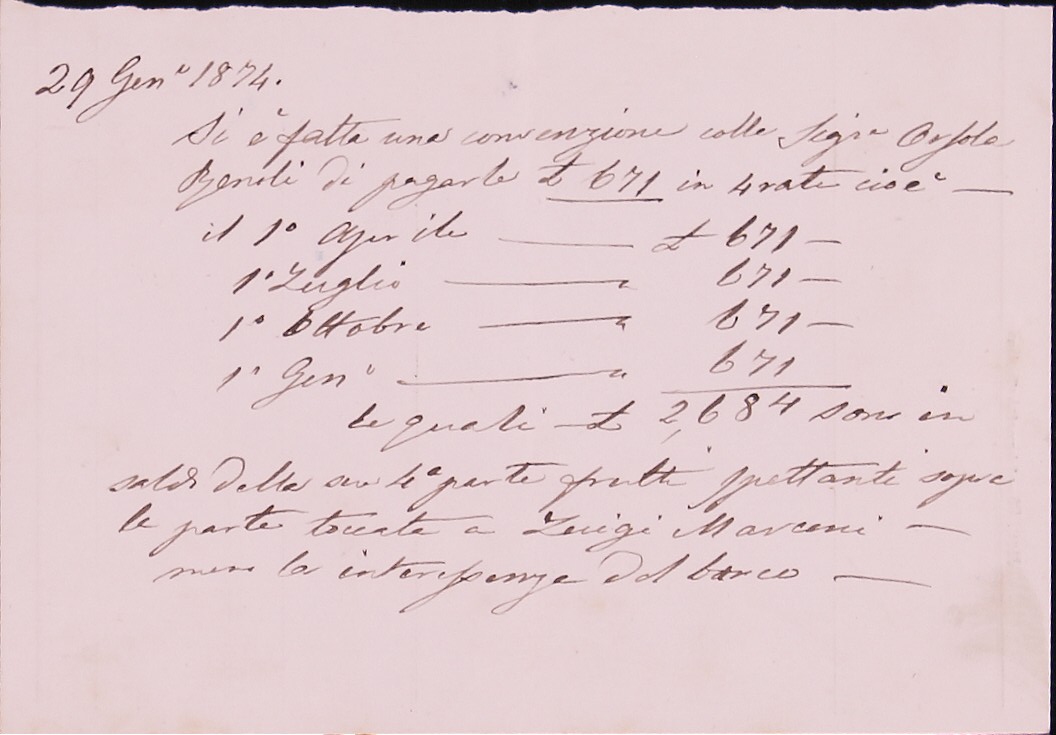 29 Gen° 1874.
Si è fatta una convenzione colla Sigra Orsola
di pagarle £ 671 in 4 rate cioè —
il 1° Aprile — £ 671 —
1° Luglio — " 671 —
1° Ottobre — " 671 —
1° Gen° — " 671
le quali £ 2,684 sono in
saldo della sua 4a parte frutti spettanti sopra
la parte toccata a Luigi Marconi —
meno la del —